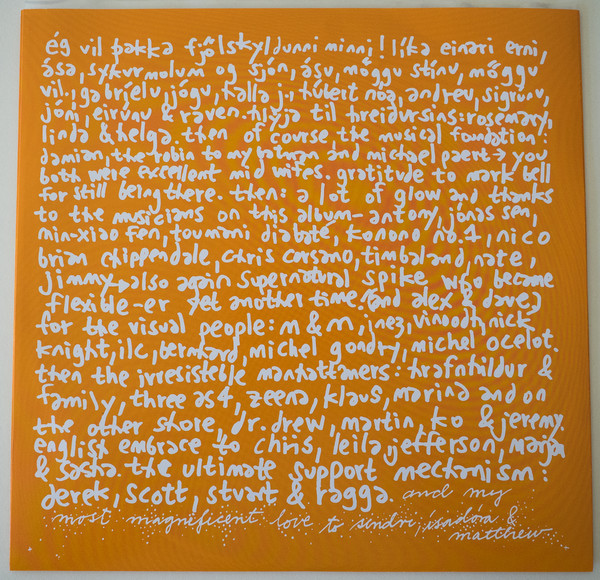 ég vil þakka fjölskyldunni minni! líka einari erni,
ása, sykurmolum og sjón, ásu, möggu stínu, möggu
vil, gabríelu, jógu, halla j., húbert nóa, andreu, sigrúnu,
jóni, eirúnu & raven. hlýja til hreidursins: rosemary,
linda & helga. then of course the musical foundation:
damian, the robin to my batman and michael paert → you
both were excellent mid wifes. gratitude to mark bell
for still being there. then: a lot of glow and thanks
to the musicians on this album - antony, jónas sen,
min-xiao fen, toumani diabate, konono no.1, nico
brian chippendale, chris corsano, timbaland, nate,
jimmy → also again supernatural spike who became
flexible-er yet another time. (and alex & dave)
for the visual people: m & m, inez, vinoodh, nick
knight, ilc, bernhard, michel gondry, michel ocelot.
then the irresisteble manhattaners: hrafnhildur &
family, three as4, zeena, klaus, marina and on
the other shore, dr. drew, martin, ko & jeremy.
english embrace to chris, leila, jefferson, marja
& sasha. the ultimate support mechanism:
derek, scott, stuart & ragga. and my
most magnificent love to sindri, ísadóra &
matthew